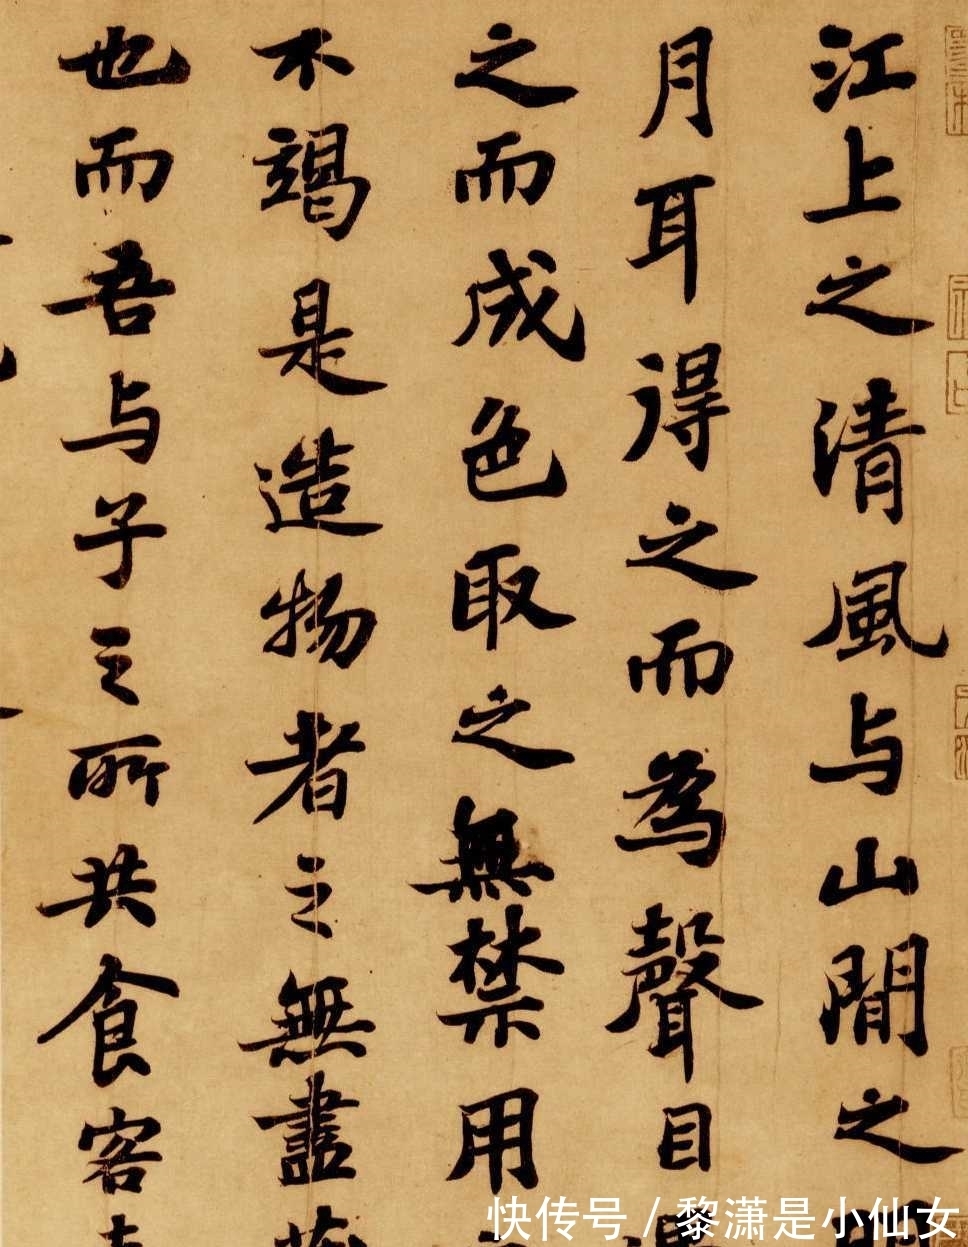 江上之清風与山間之
月耳得之而為聲目
之而成色取之無禁用
不竭是造物者之無盡
也而吾与子之所共食客
快传号 / 黎潇是小仙女